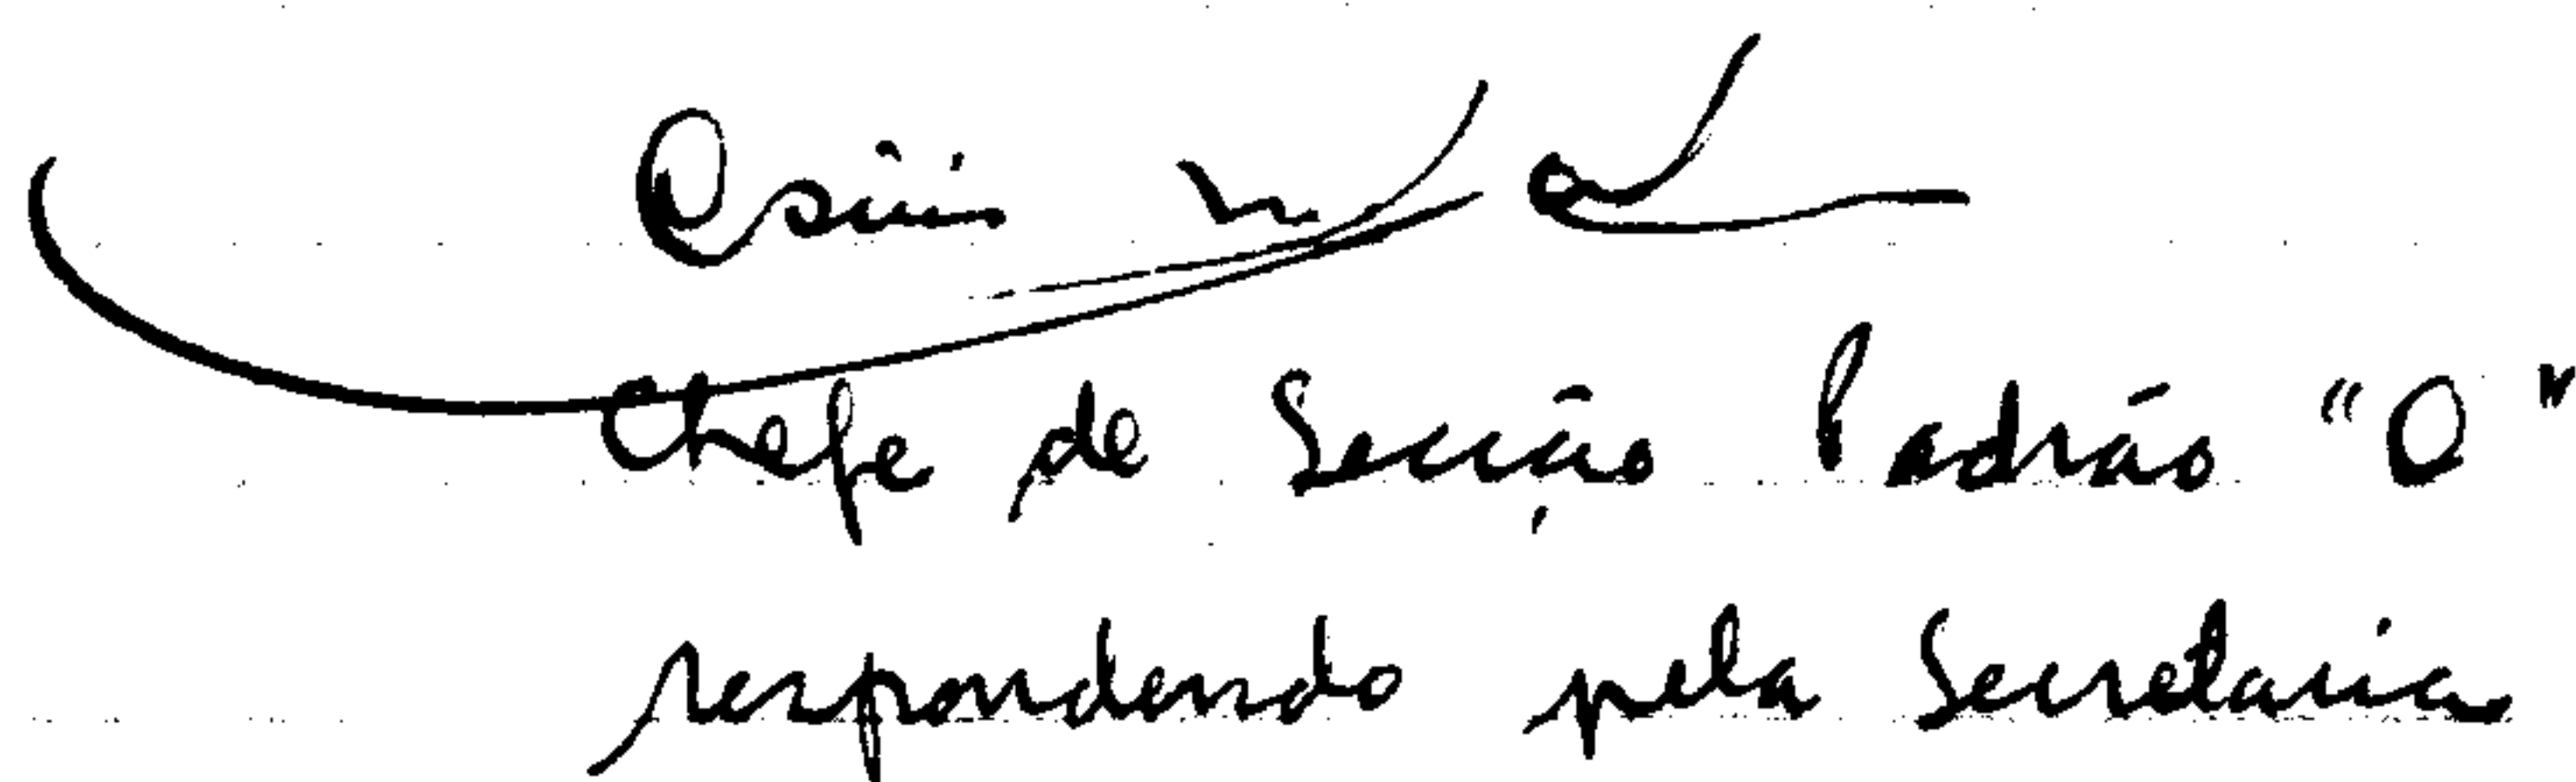 Chefe de Secção Padrão "O"
respondendo pela Secretaria